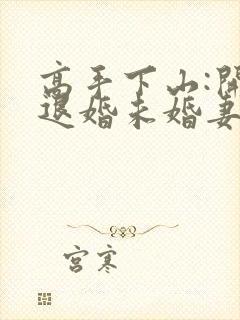 高手下山:開
退婚未婚妻
宫寒